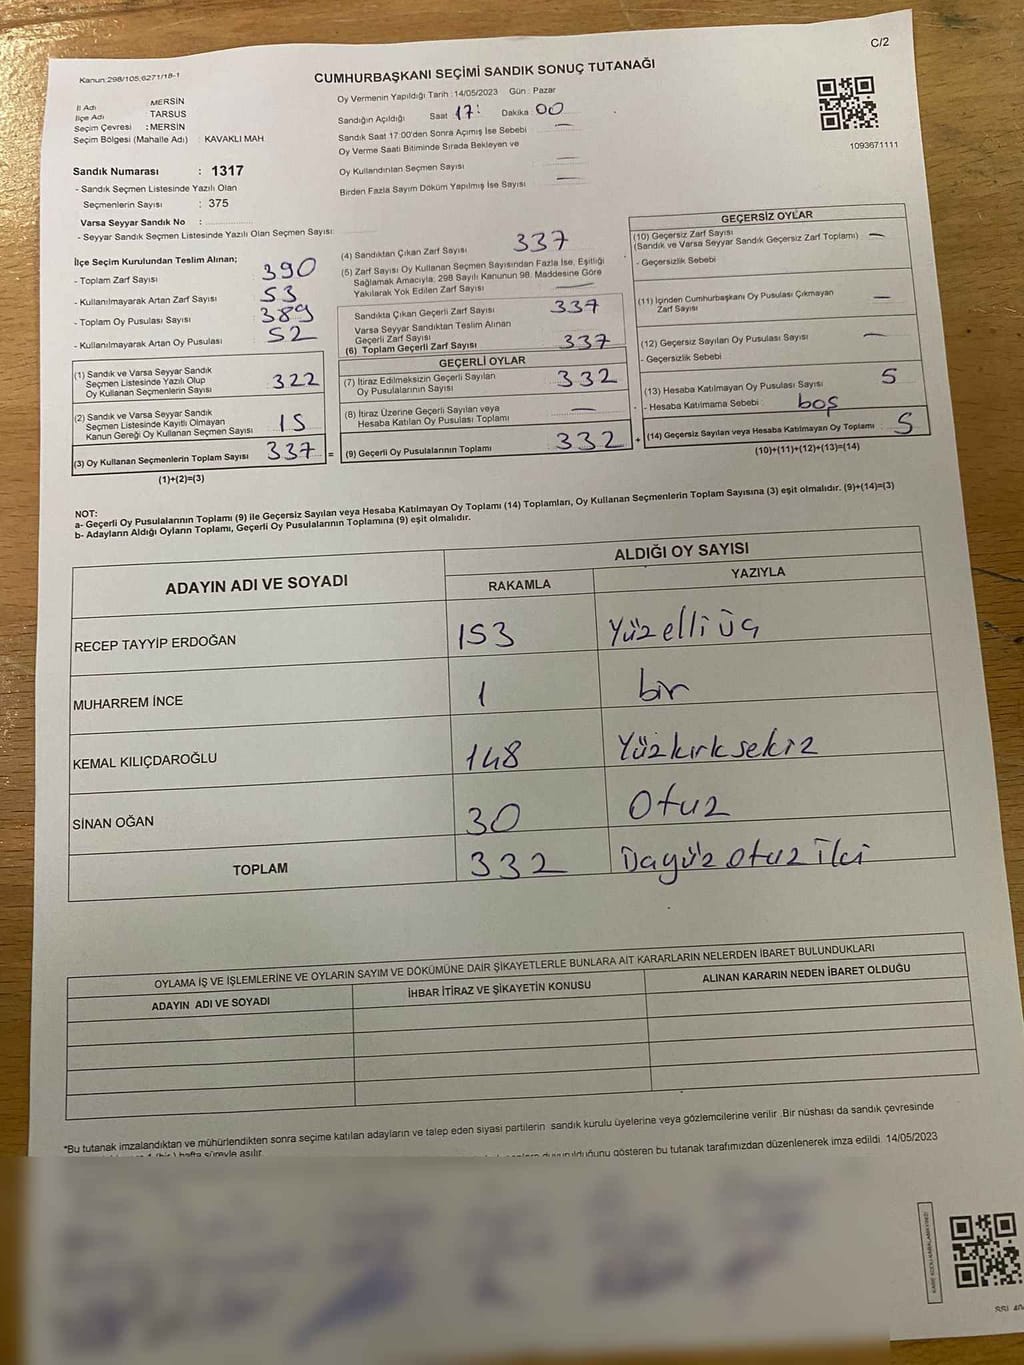 C/2
Kanun:298/105;6271/18-1
CUMHURBAŞKANI SEÇİMİ SANDIK SONUÇ TUTANAĞI
İl Adı : MERSİN
İlçe Adı : TARSUS
Seçim Çevresi : MERSİN
Seçim Bölgesi (Mahalle Adı) : KAVAKLI MAH
Oy Vermenin Yapıldığı Tarih : 14/05/2023 Gün : Pazar
Sandığın Açıldığı Saat 17: Dakika 00
Sandık Saat 17:00'den Sonra Açımış İse Sebebi —
Oy Verme Saati Bitiminde Sırada Bekleyen ve
Oy Kullandırılan Seçmen Sayısı —
Birden Fazla Sayım Döküm Yapılmış İse Sayısı —
1093671111
Sandık Numarası : 1317
- Sandık Seçmen Listesinde Yazılı Olan
Seçmenlerin Sayısı : 375
Varsa Seyyar Sandık No :
- Seyyar Sandık Seçmen Listesinde Yazılı Olan Seçmen Sayısı:
İlçe Seçim Kurulundan Teslim Alınan;
- Toplam Zarf Sayısı 390
- Kullanılmayarak Artan Zarf Sayısı 53
- Toplam Oy Pusulası Sayısı 389
- Kullanılmayarak Artan Oy Pusulası 52
(1) Sandık ve Varsa Seyyar Sandık
Seçmen Listesinde Yazılı Olup
Oy Kullanan Seçmenlerin Sayısı 322
(2) Sandık ve Varsa Seyyar Sandık
Seçmen Listesinde Kayıtlı Olmayan
Kanun Gereği Oy Kullanan Seçmen Sayısı 15
(3) Oy Kullanan Seçmenlerin Toplam Sayısı 337 =
(1)+(2)=(3)
(4) Sandıktan Çıkan Zarf Sayısı 337
(5) Zarf Sayısı Oy Kullanan Seçmen Sayısından Fazla İse, Eşitliği
Sağlamak Amacıyla; 298 Sayılı Kanunun 98. Maddesine Göre
Yakılarak Yok Edilen Zarf Sayısı —
Sandıkta Çıkan Geçerli Zarf Sayısı 337
Varsa Seyyar Sandıktan Teslim Alınan
Geçerli Zarf Sayısı
(6) Toplam Geçerli Zarf Sayısı 337
GEÇERLİ OYLAR
(7) İtiraz Edilmeksizin Geçerli Sayılan
Oy Pusulalarının Sayısı 332
(8) İtiraz Üzerine Geçerli Sayılan veya
Hesaba Katılan Oy Pusulası Toplamı —
(9) Geçerli Oy Pusulalarının Toplamı 332 +
GEÇERSİZ OYLAR
(10) Geçersiz Zarf Sayısı
(Sandık ve Varsa Seyyar Sandık Geçersiz Zarf Toplamı) —
- Geçersizlik Sebebi
(11) İçinden Cumhurbaşkanı Oy Pusulası Çıkmayan
Zarf Sayısı —
(12) Geçersiz Sayılan Oy Pusulası Sayısı —
- Geçersizlik Sebebi
(13) Hesaba Katılmayan Oy Pusulası Sayısı 5
- Hesaba Katılmama Sebebi : boş
(14) Geçersiz Sayılan veya Hesaba Katılmayan Oy Toplamı 5
(10)+(11)+(12)+(13)=(14)
NOT:
a- Geçerli Oy Pusulalarının Toplamı (9) ile Geçersiz Sayılan veya Hesaba Katılmayan Oy Toplamı (14) Toplamları, Oy Kullanan Seçmenlerin Toplam Sayısına (3) eşit olmalıdır. (9)+(14)=(3)
b- Adayların Aldığı Oyların Toplamı, Geçerli Oy Pusulalarının Toplamına (9) eşit olmalıdır.
ADAYIN ADI VE SOYADI
ALDIĞI OY SAYISI
RAKAMLA YAZIYLA
RECEP TAYYİP ERDOĞAN 153 Yüz elli üç
MUHARREM İNCE 1 bir
KEMAL KILIÇDAROĞLU 148 Yüz kırk sekiz
SİNAN OĞAN 30 Otuz
TOPLAM 332 Üçyüz otuz iki
OYLAMA İŞ VE İŞLEMLERİNE VE OYLARIN SAYIM VE DÖKÜMÜNE DAİR ŞİKAYETLERLE BUNLARA AİT KARARLARIN NELERDEN İBARET BULUNDUKLARI
ADAYIN ADI VE SOYADI İHBAR İTİRAZ VE ŞİKAYETİN KONUSU ALINAN KARARIN NEDEN İBARET OLDUĞU
*Bu tutanak imzalandıktan ve mühürlendikten sonra seçime katılan adayların ve talep eden siyasi partilerin sandık kurulu üyelerine veya gözlemcilerine verilir .Bir nüshası da sandık çevresinde
1 (bir ) hafta süreyle asılır.
duyurulduğunu gösteren bu tutanak tarafımızdan düzenlenerek imza edildi. 14/05/2023